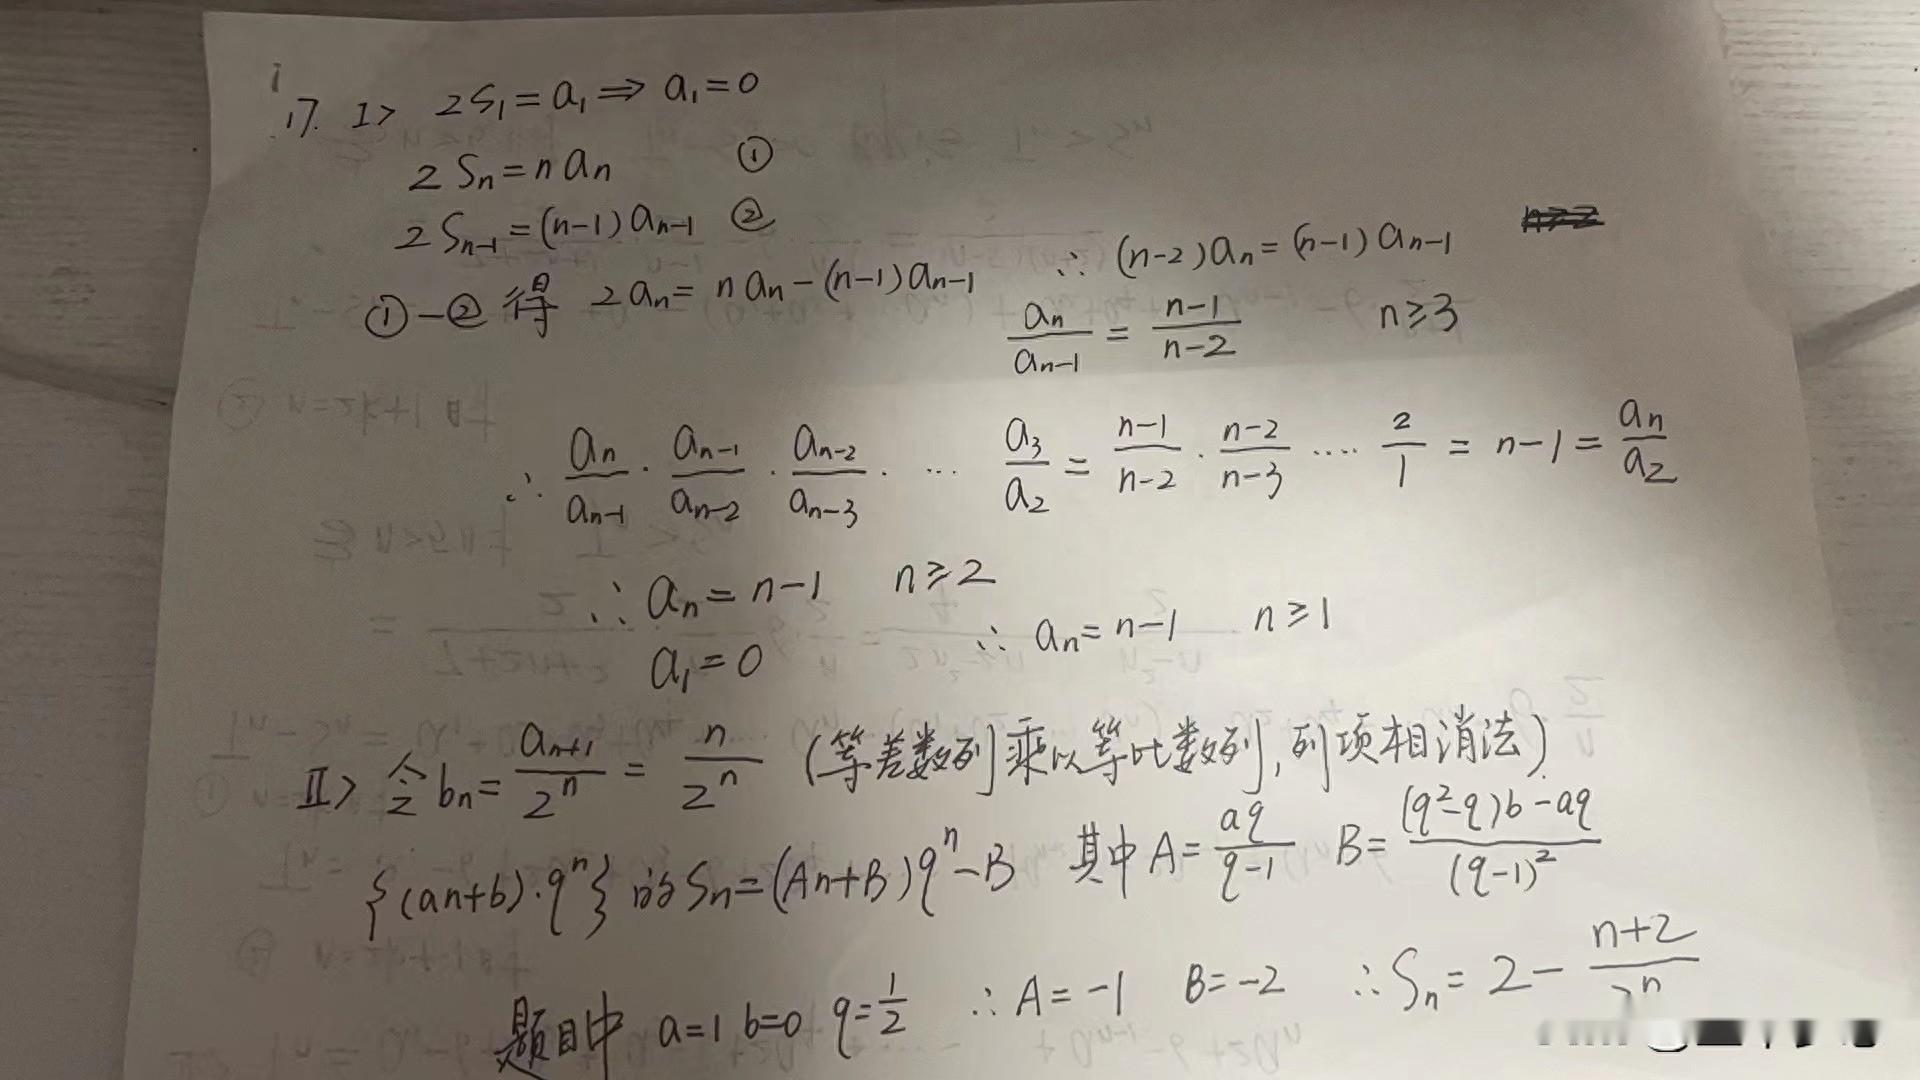 17. I> 2S₁=a₁⇒a₁=0
2Sn=nan ①
2Sn-1=(n-1)an-1 ②
①-②得 2an=nan-(n-1)an-1 ∴(n-2)an=(n-1)an-1
an/an-1 = n-1/n-2 n≥3
∴ an/an-1 · an-1/an-2 · an-2/an-3 · ... a₃/a₂ = n-1/n-2 · n-2/n-3 .... 2/1 = n-1 = an/a₂
∴ an=n-1 n≥2
a₁=0 ∴ an=n-1 n≥1
II> 令bn= an+1/2ⁿ = n/2ⁿ (等差数列乘以等比数列,列项相消法)
{(an+b)·qⁿ}的Sn=(An+B)qⁿ-B 其中A= aq/q-1 B= (q²-q)b-aq/(q-1)²
题目中 a=1 b=0 q=1/2 ∴A=-1 B=-2 ∴Sn=2- n+2/2ⁿ